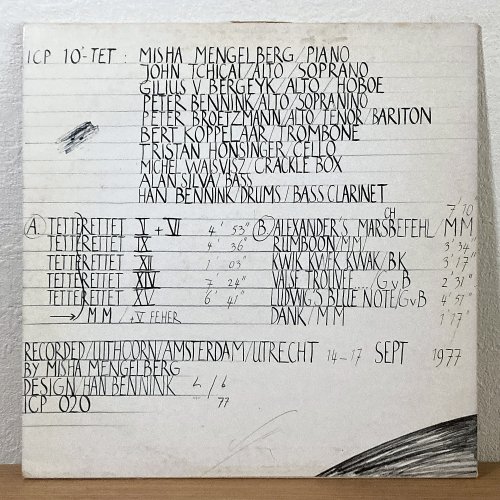 ICP 10'-TET : MISHA MENGELBERG/PIANO
JOHN TCHICAI/ALTO/SOPRANO
GILIUS V BERGEYK/ALTO/HOBOE
PETER BENNINK/ALTO/SOPRANINO
PETER BROETZMANN/ALTO/TENOR/BARITON
BERT KOPPELAAR/TROMBONE
TRISTAN HONSINGER/CELLO
MICHEL WAISVISZ/CRACKLE BOX
ALAN SILVA/BASS
HAN BENNINK/DRUMS/BASS CLARINET
A TETTERETTET V + VI 4' 53"
TETTERETTET IX 4' 36"
TETTERETTET XII 1' 03"
TETTERETTET XIV 7' 24"
TETTERETTET XV 6' 41"
→ MM / + V FEHER
B ALEXANDER'S MARSCHBEFEHL/MM 7' 10
RUMBOON/MM/ 3' 34"
KWIK KWEK KWAK/BK 5' 17"
VALSE TROUVÉE..../GvB 2' 31"
LUDWIG'S BLUE NOTE/GvB 4' 51"
DANK/MM 1' 17"
RECORDED/UITHOORN/AMSTERDAM/UTRECHT 14-17 SEPT 1977
BY MISHA MENGELBERG
DESIGN/HAN BENNINK
77
ICP 020